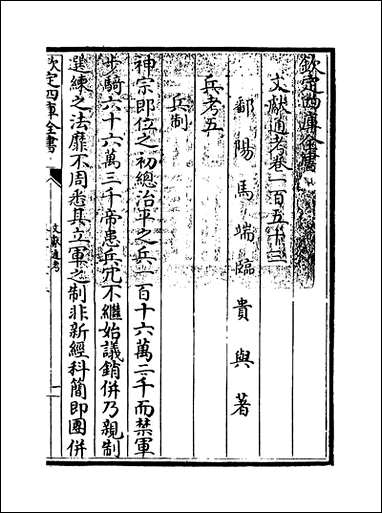 欽定四庫全書
文獻通考卷一百五十三
鄱陽馬端臨貴與著
兵考五
兵制
神宗即位之初總治平之兵一百十六萬二千而禁軍
步騎六十六萬三千帝患兵冗不繼始議銷併乃親制
選練之法靡不周悉其立軍之制非新經科簡即團併
欽定四庫全書
文獻通考
一